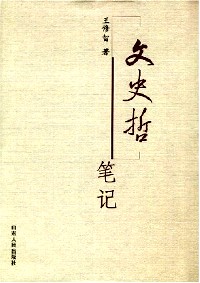 王修智 著
「文史哲」
笔记
山东人民出版社